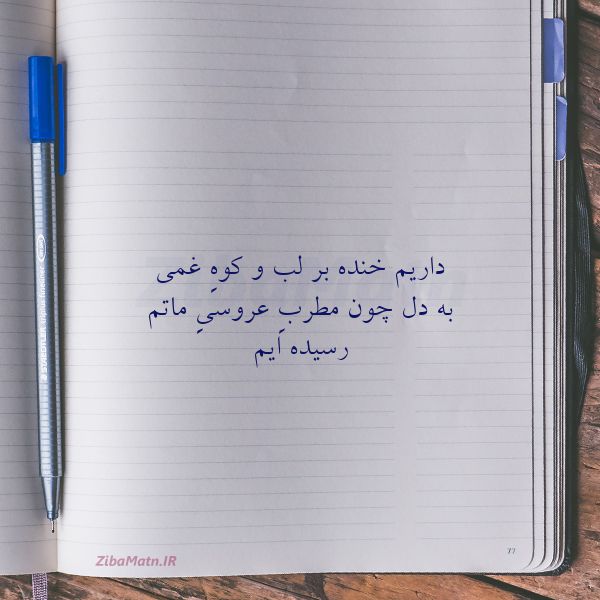 داریم خنده بر لب و کوهِ غمی
به دل چون مطربِ عروسیِ ماتم
رسیده ایم
ZibaMatn.IR
77